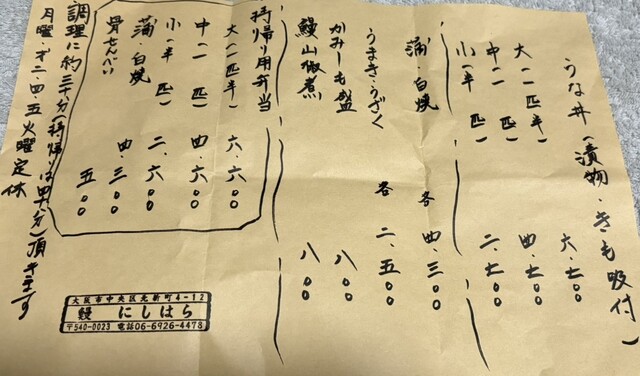 うな丼（漬物・きも吸付）
大（一匹半）　六・七〇〇
中（一匹）　四・七〇〇
小（半匹）　二・七〇〇
蒲・白焼　各　四・三〇〇
うまき・うざく　各　二・五〇〇
かみしも盛　八〇〇
鰻山椒煮　八〇〇
持帰り用弁当
大（一匹半）　六・六〇〇
中（一匹）　四・六〇〇
小（半匹）　二・六〇〇
蒲・白焼　四・三〇〇
骨せんべい　五〇〇
調理に約三十分（持帰りは四十分）頂きます
月曜・才二、四、五火曜定休
大阪市中央区北新町4-12
鰻 にしはら
〒540-0023 電話06-6926-4478